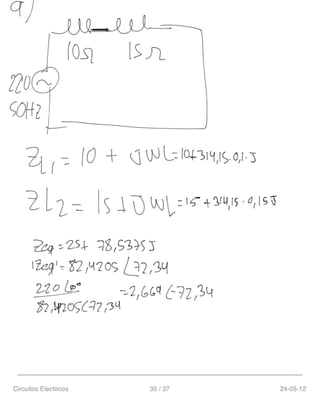 a)
10Ω 15Ω
220
50HZ
ZL1 = 10 + JWL=10+314,15.0,1.J
ZL2 = 15+JWL=15+314,15.0,15J
Zeq=25+ 78,5375J
|Zeq|=82,4205∠72,34
220∠0° =2,669∠-72,34
82,4205∠72,34
Circuitos Electircos 35 / 37 24-05-12